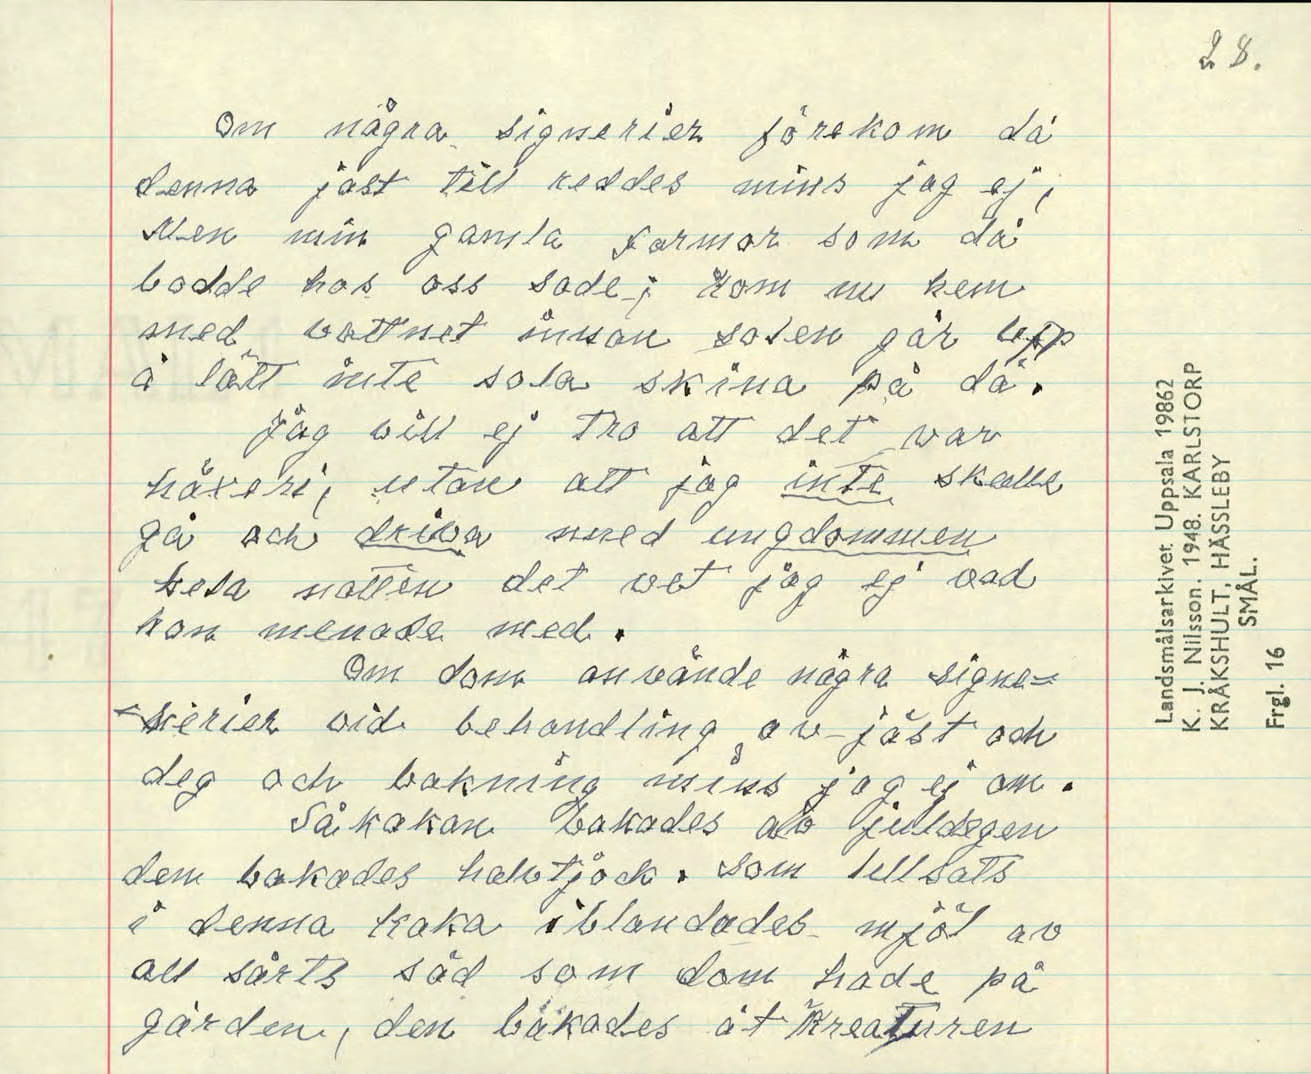 28.
Om några signerier förekom då
denna jäst till reddes mins jag ej,
Men min gamla farmor som då
bodde hos oss sade; Kom nu hem
med vattnet innan solen går upp
å lått inte sola skina på då.
Jag vill ej tro att det var
häxeri, utan att jag inte skulle
gå och driva med ungdommen
hela natten det vet jag ej vad
hon menade med.
Om dom använde några signe=
=rier vid behandling av jäst och
deg och bakning mins jag ej om.
Såkakan bakades av juldegen
dem bakades halvtjock. Som tillsats
i denna kaka iblandades mjöl av
all sårts säd som dom hade på
gården, den bakades åt Kreaturen
Landsmålsarkivet Uppsala 19862
K. J. Nilsson. 1948. KARLSTORP
KRÅKSHULT, HÄSSLEBY
SMÅL.
Frgl. 16